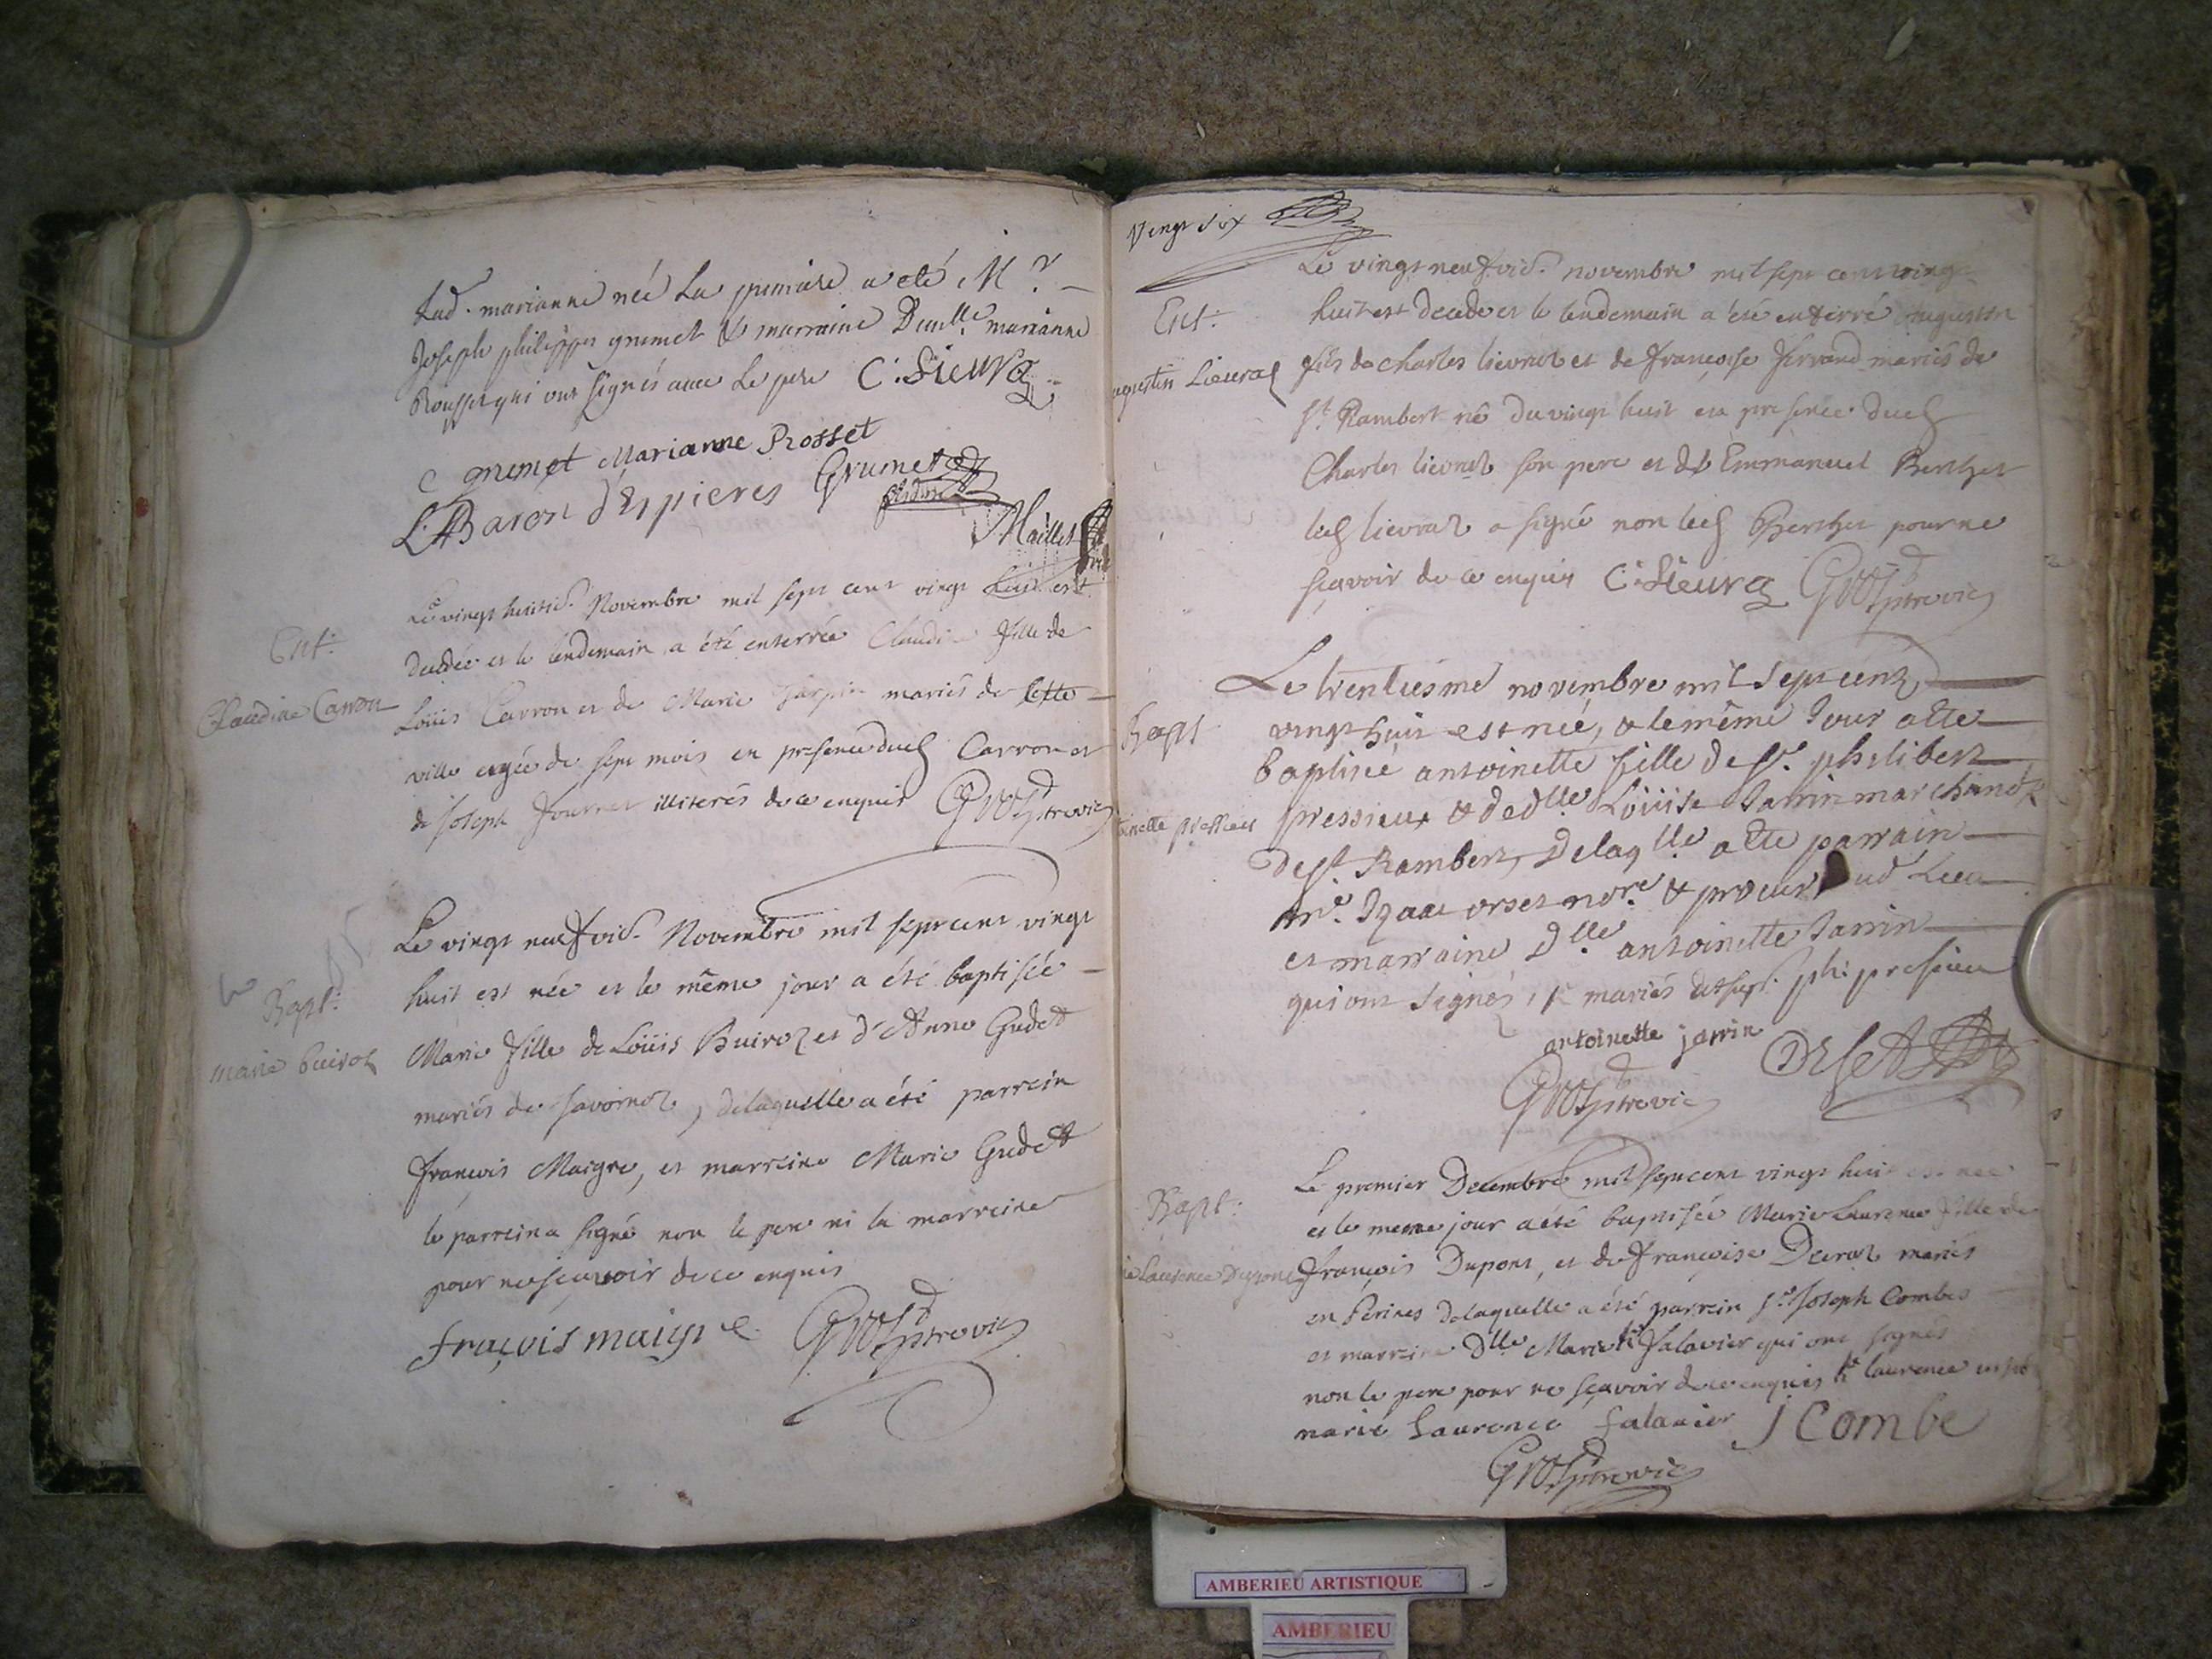 lad. marianne née la premiere a eté Mr
Joseph philippes grumet & marraine Demlle marianne
Rousset qui ont signés avec le pere C. Lieura
grumet Marianne Rosset
L. Baron d'Espieres Grumet
Maillet
Ent:
Claudine Carron
Le vingt huitie. Novembre mil sept cent vingt huit est
decedée et le lendemain a été enterrée Claudine fille de
Loüis Carron et de Marie mariés de cette
ville agée de sept mois en presence dud Carron et
de Joseph fournet illiterés de ce enquis Grosptrevic
Bapt:
marie buirot
Le vingt neufvie. Novembre mil sept cent vingt
huit est née et le même jour a été baptisée
Marie fille de Loüis Buiroz et d'Anne Gudet
mariés de Javornoz, de laquelle a été parrein
françois Maigre, et marreine Marie Gudet
le parrein a signé non le pere ni la marreine
pour ne scavoir de ce enquis
fraçois maigre Grosptrevic
Vingt six
Ent:
augustin Lieuraz
Le vingt neufvie. novembre mil sept cent vingt
huit est decedé et le lendemain a été enterré Augustin
fils de Charles lievraz et de françoise ferrand mariés de
St. Rambert né du vingt huit en presence dud
Charles lievraz son pere et de Emmanuel Berthet
led lievraz a signé non led Berthet pour ne
sçavoir de ce enquis C. Lieura Grosptrevic
Bapt
toinette pressieu
Le trentiesme novembre mil sept cent
vingt huit est née, & le même jour a ette
baptisée antoinette fille de sr. philibert
pressieux & de dlle Loüise Janin marchands
de st. Rambert, de laqlle a ette parrain
me. Izaac orset nore & procur dud Lieu
et marraine dlle antoinette Janin
qui ont signés, ph: presieu
antoinette janin Orset
Grosptrevic
Bapt:
ie Laurence Dupont
Le premier Decembre mil sept cent vingt huit est née
et le meme jour a été baptisée Marie Laurence fille de
françois Dupont, et de françoise Deroz mariés
en Perines de laquelle a été parrein sr Joseph Combes
et marreine Dlle Marie falavier qui ont signés
non le pere pour ne sçavoir de ce enquis laurence
marie Laurence falavier J Combe
Grosptrevic
AMBERIEU ARTISTIQUE
AMBERIEU